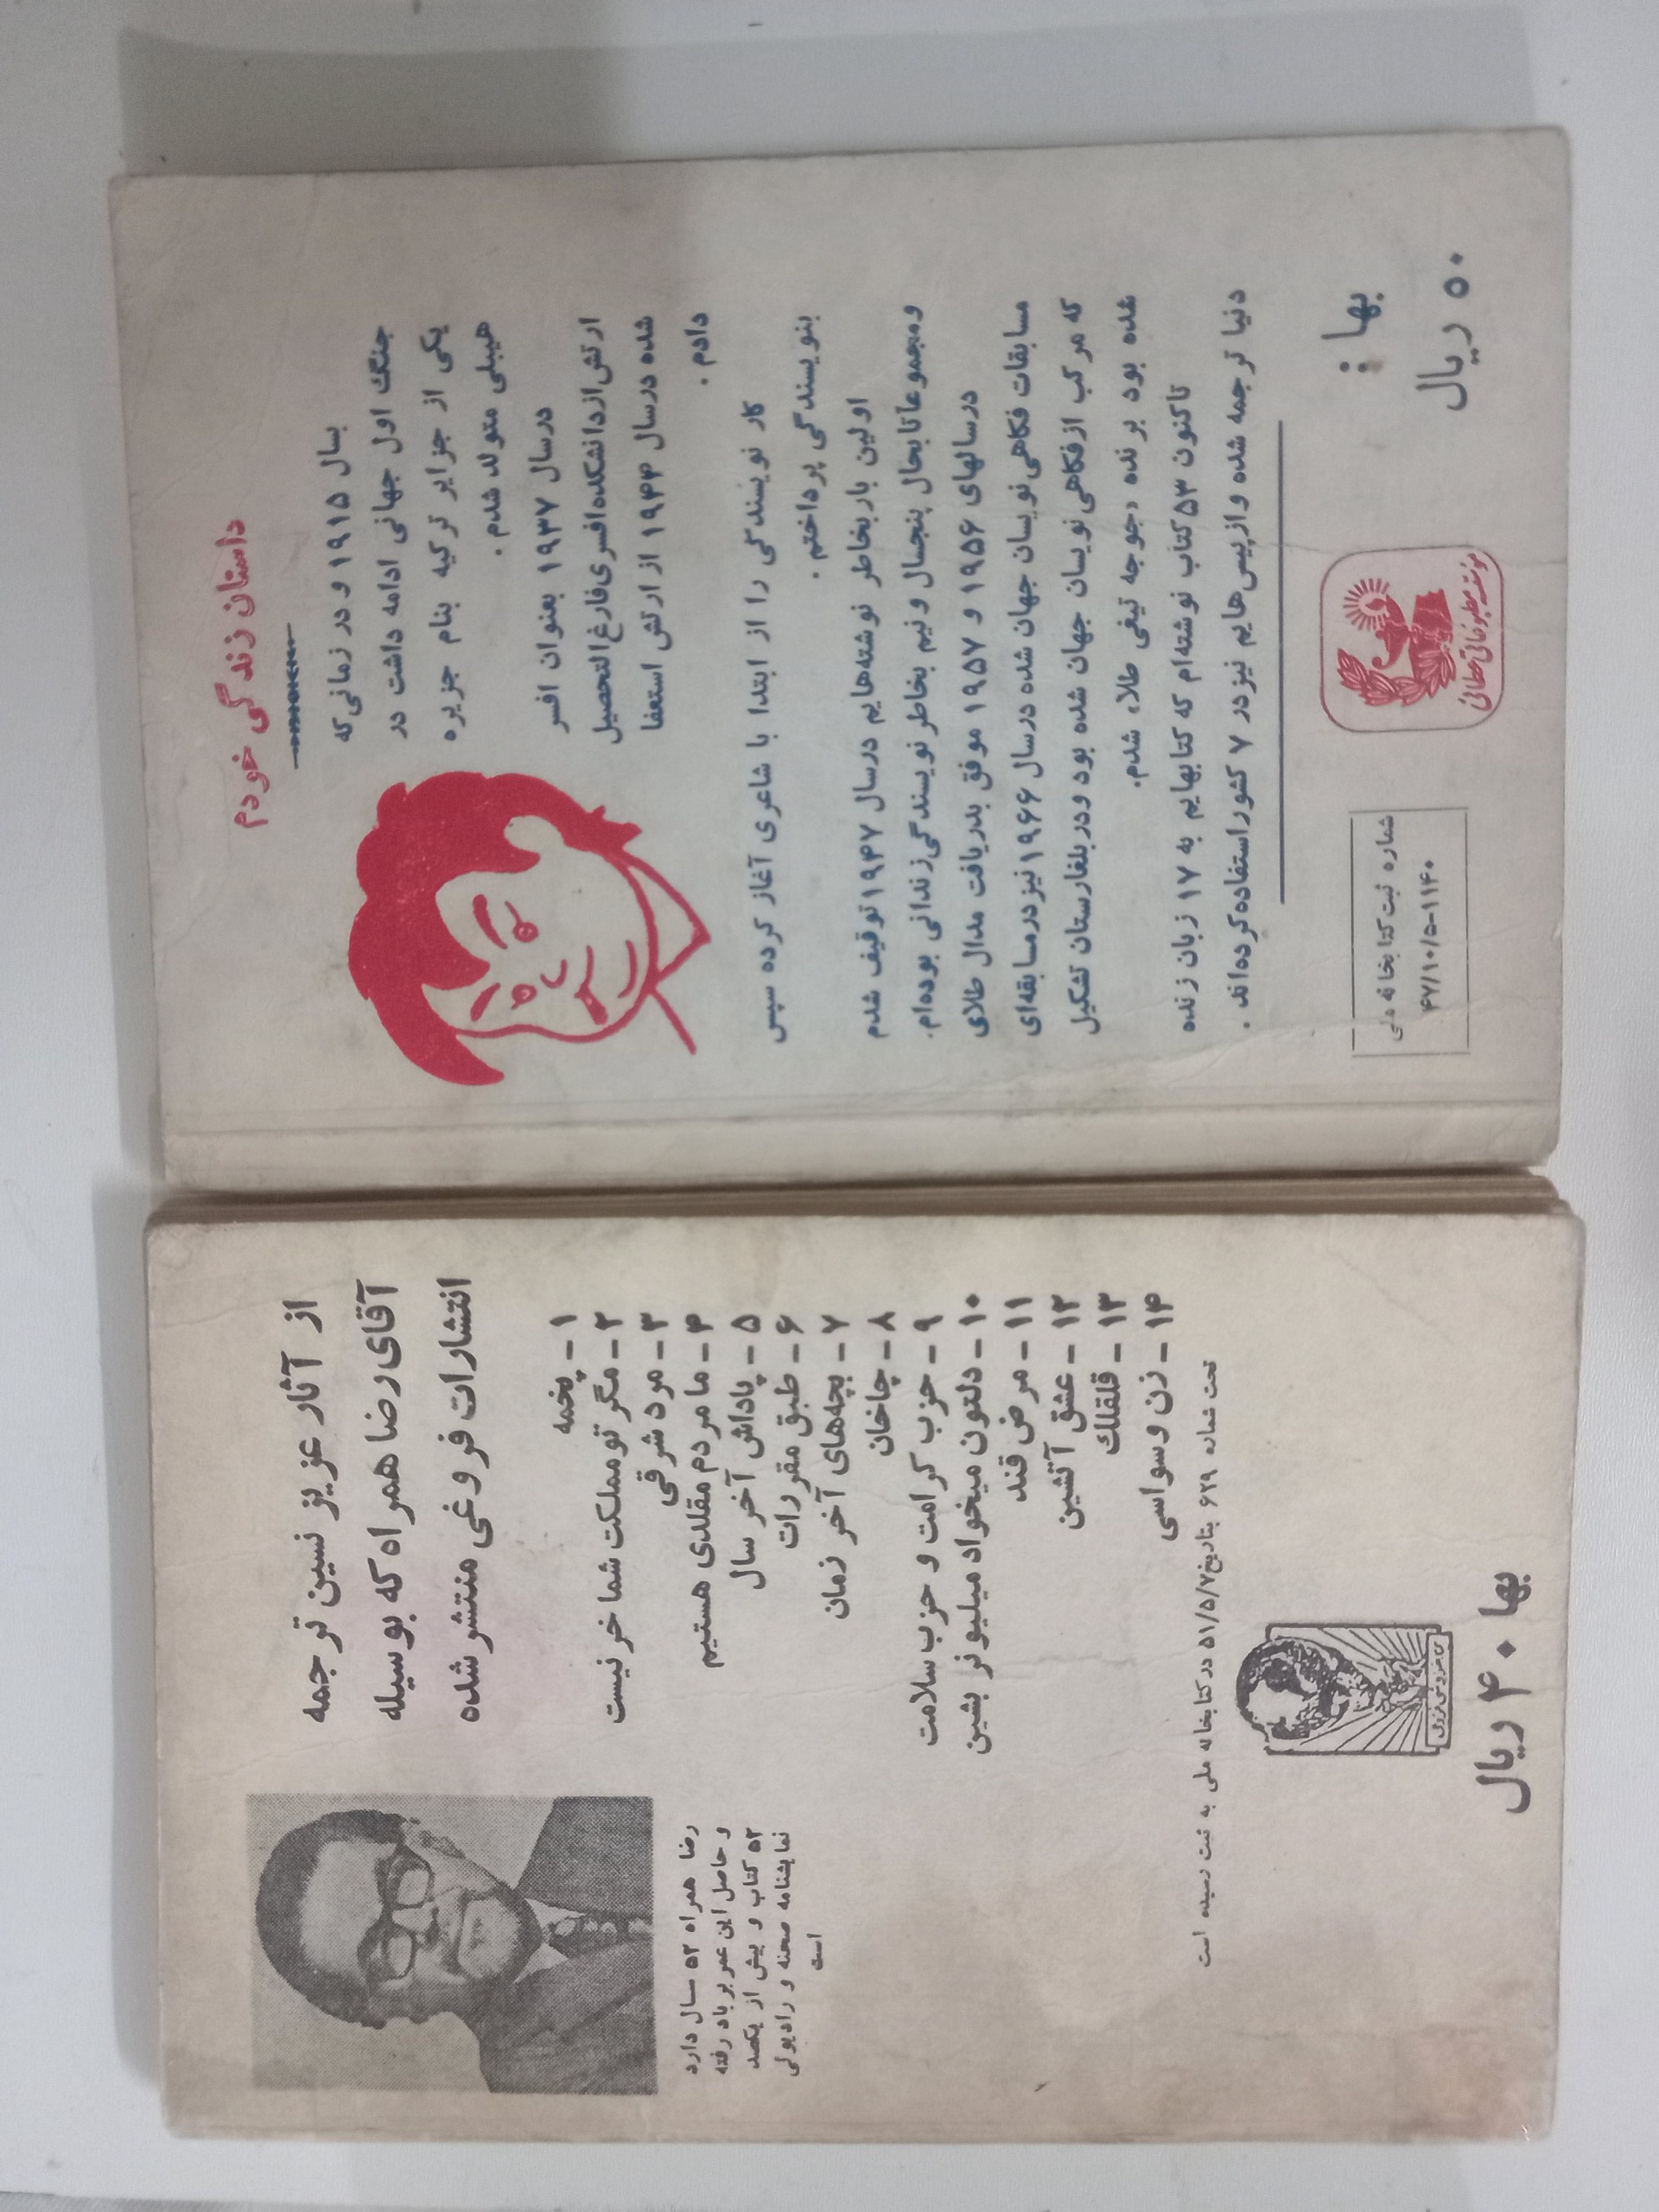 داستان زندگی خودم
بسال ۱۹۱۵ و در زمانی که
جنگ اول جهانی ادامه داشت در
یکی از جزایر ترکیه بنام جزیره
هیبلی متولد شدم .
درسال ۱۹۳۷ بعنوان افسر
ارتش از دانشکده افسری فارغ التحصیل
شده درسال ۱۹۴۴ از ارتش استعفا
دادم .
کار نویسندگی را از ابتدا با شاعری آغاز کرده سپس
بنویسندگی پرداختم .
اولین بار بخاطر نوشته‌هایم درسال ۱۹۴۷ توقیف شدم
ومجموعاً تا بحال پنجسال ونیم بخاطر نویسندگی زندانی بوده‌ام.
درسالهای ۱۹۵۶ و ۱۹۵۷ موفق بدریافت مدال طلای
مسابقات فکاهی نویسان جهان شده درسال ۱۹۶۶ نیز درمسابقه‌ای
که مرکب از فکاهی نویسان جهان شده بود ودر بلغارستان تشکیل
شده بود برنده «جوجه تیغی طلا» شدم.
تاکنون ۵۳ کتاب نوشته‌ام که کتابهایم به ۱۷ زبان زنده
دنیا ترجمه شده و از پیس‌هایم نیز در ۷ کشور استفاده کرده‌اند .
بها :
۵۰ ریال
مؤسسه مطبوعاتی عطائی
شماره ثبت کتابخانه ملی
۴۷/۱۰/۵-۱۱۴۰
از آثار عزیز نسین ترجمه
آقای رضا همراه که بوسیله
انتشارات فروغی منتشر شده
۱ - پخمه
۲ - مگر تو مملکت شما خر نیست
۳ - مرد شرقی
۴ - ما مردم مقلدی هستیم
۵ - پاداش آخر سال
۶ - طبق مقررات
۷ - بچه‌های آخر زمان
۸ - چاخان
۹ - حزب کرامت و حزب سلامت
۱۰ - دلتون میخواد میلیونر بشین
۱۱ - مرض قند
۱۲ - عشق آتشین
۱۳ - قلقلك
۱۴ - زن وسواسی
رضا همراه ۵۲ سال دارد
و حاصل این عمر بر باد رفته
۵۲ کتاب و بیش از یکصد
نمایشنامه صحنه و رادیوئی
است
تحت شماره ۶۲۹ بتاریخ ۵۱/۵/۷ در کتابخانه ملی به ثبت رسیده است
بها ۴۰ ریال